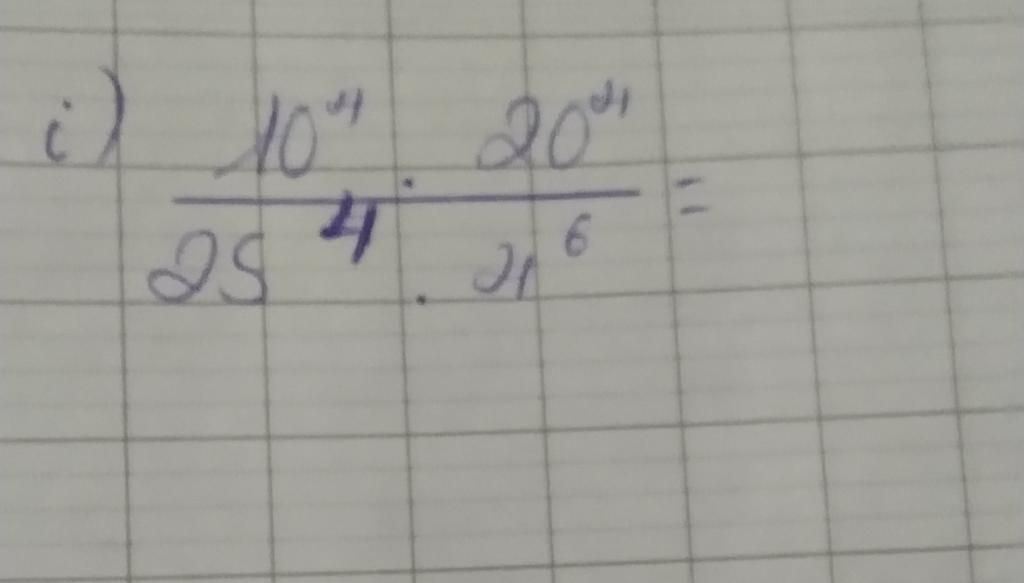 i) 10⁴ · 20⁴ =
25⁴ · 4⁶